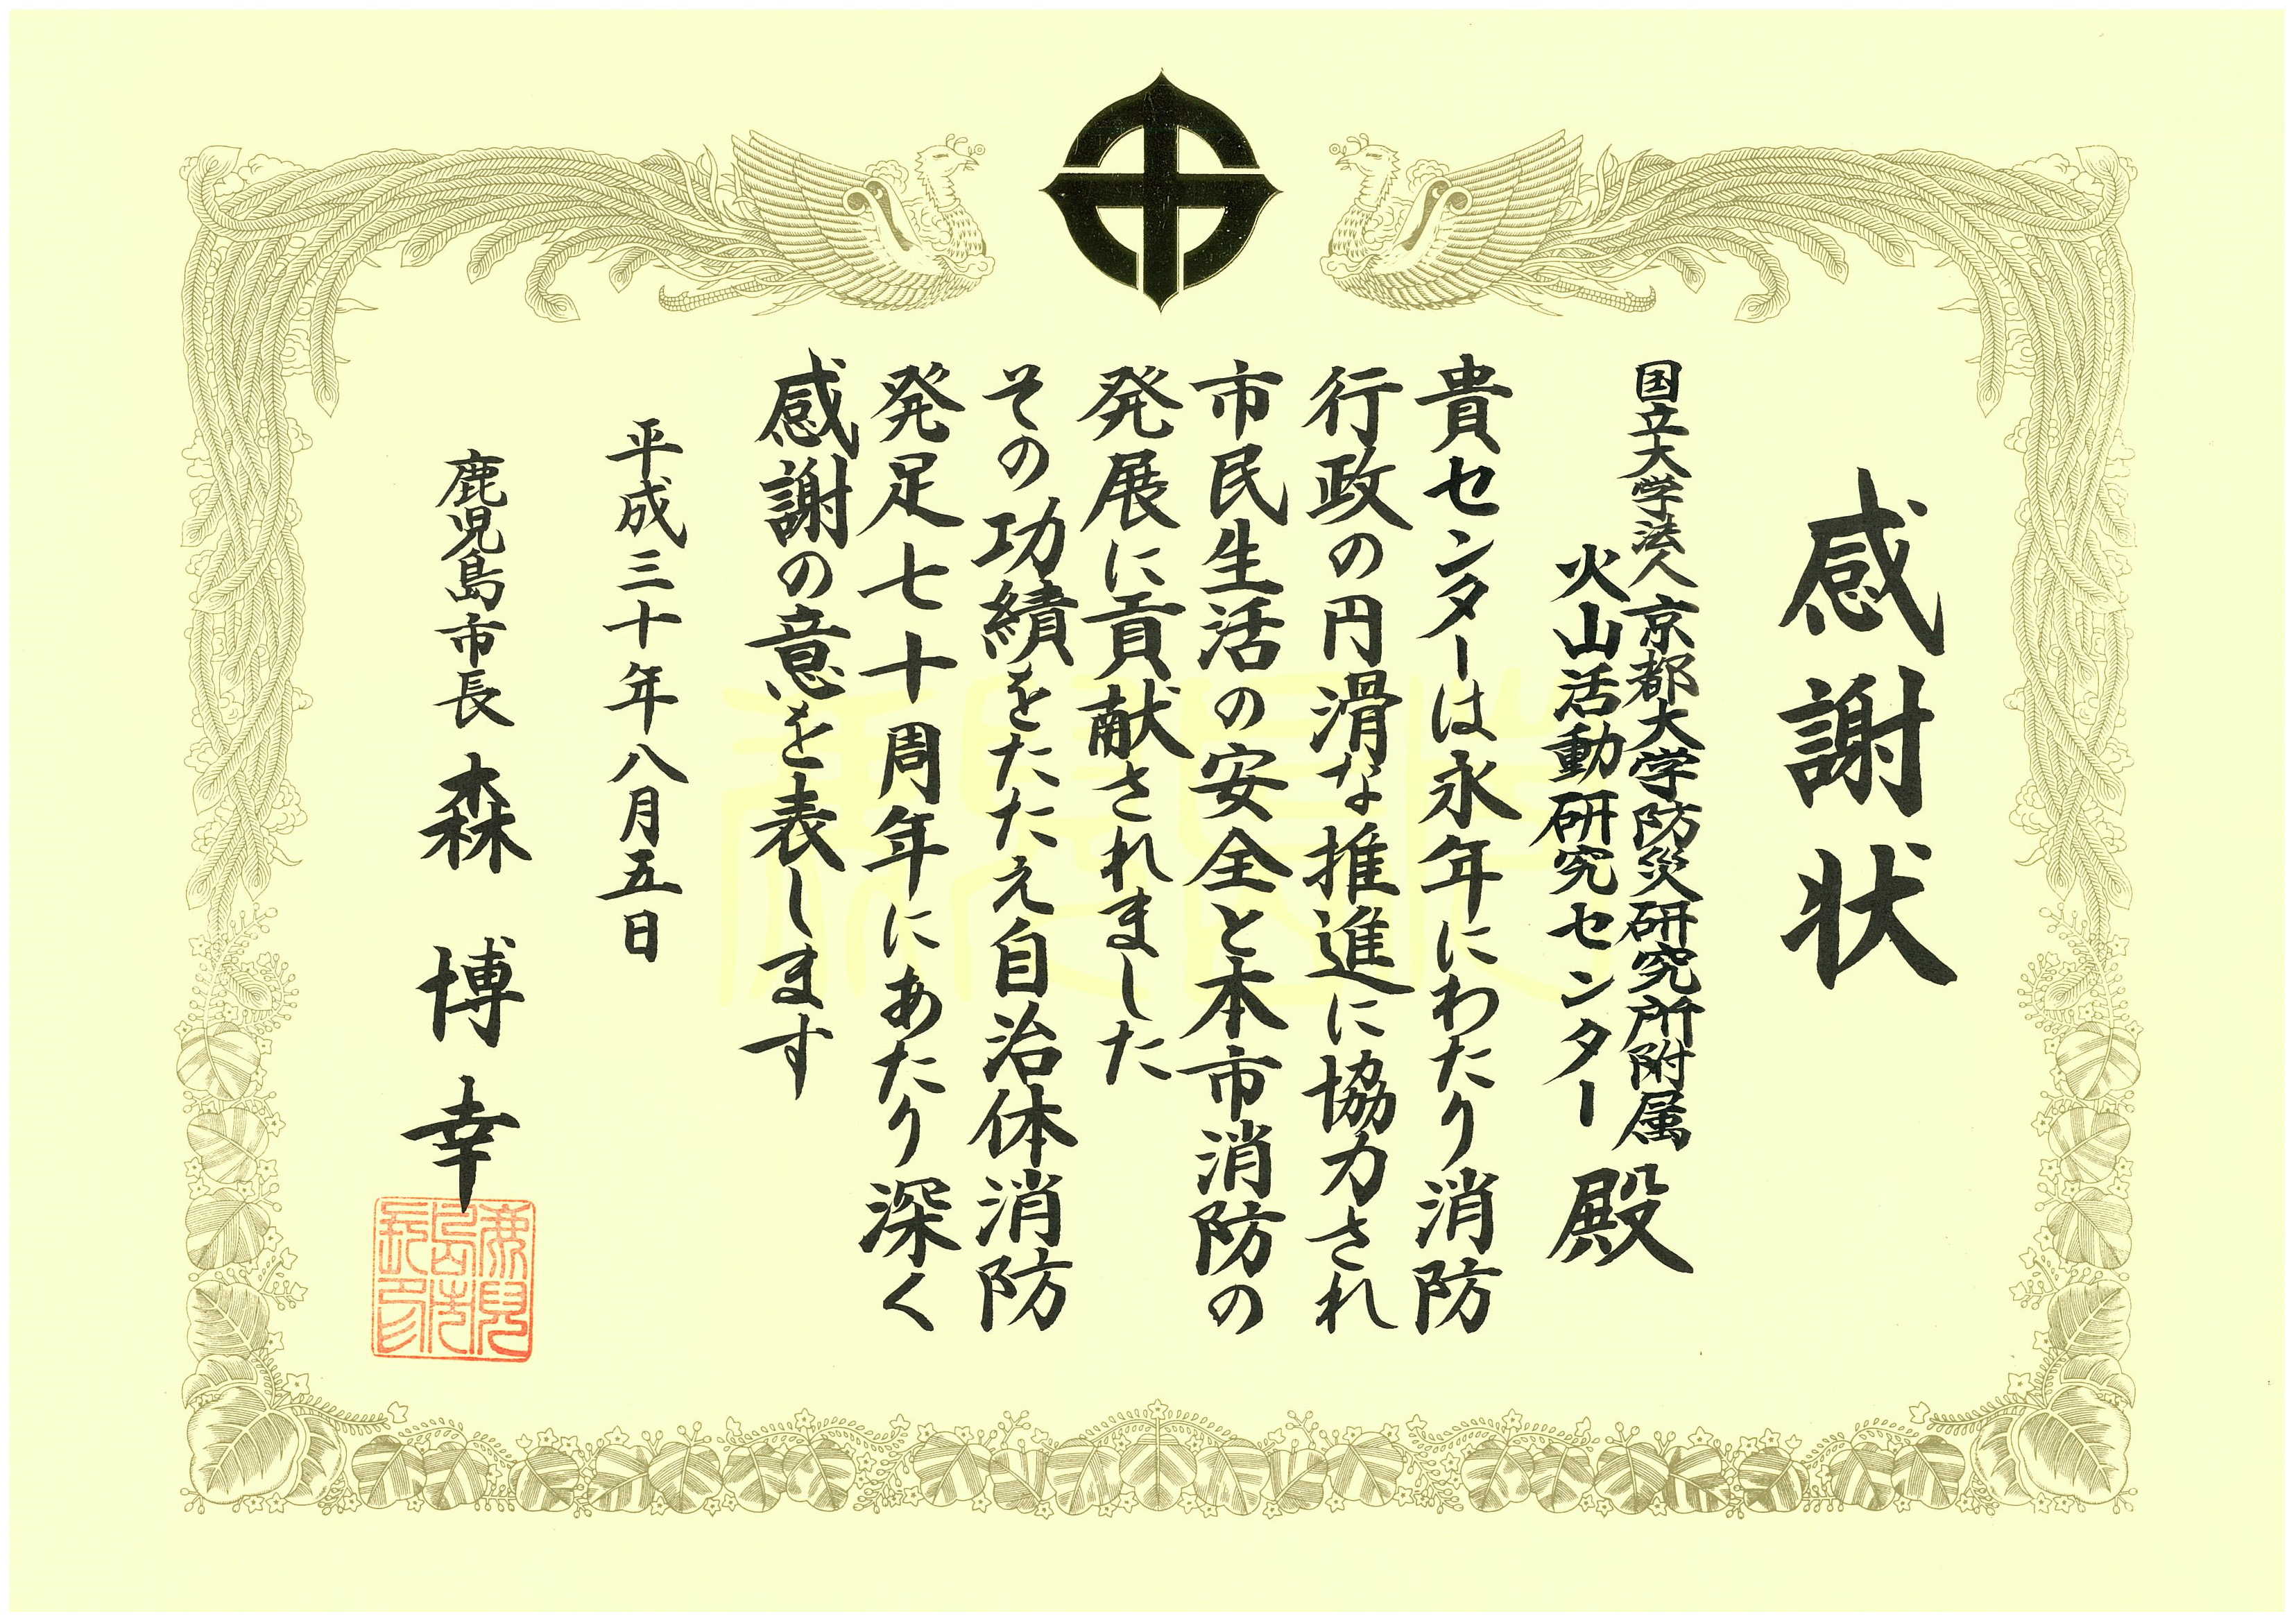 感謝状
国立大学法人京都大学防災研究所附属
火山活動研究センター 殿
貴センターは永年にわたり消防
行政の円滑な推進に協力され
市民生活の安全と本市消防の
発展に貢献されました
その功績をたたえ自治体消防
発足七十周年にあたり深く
感謝の意を表します
平成三十年八月五日
鹿児島市長 森 博幸
鹿児島市長印